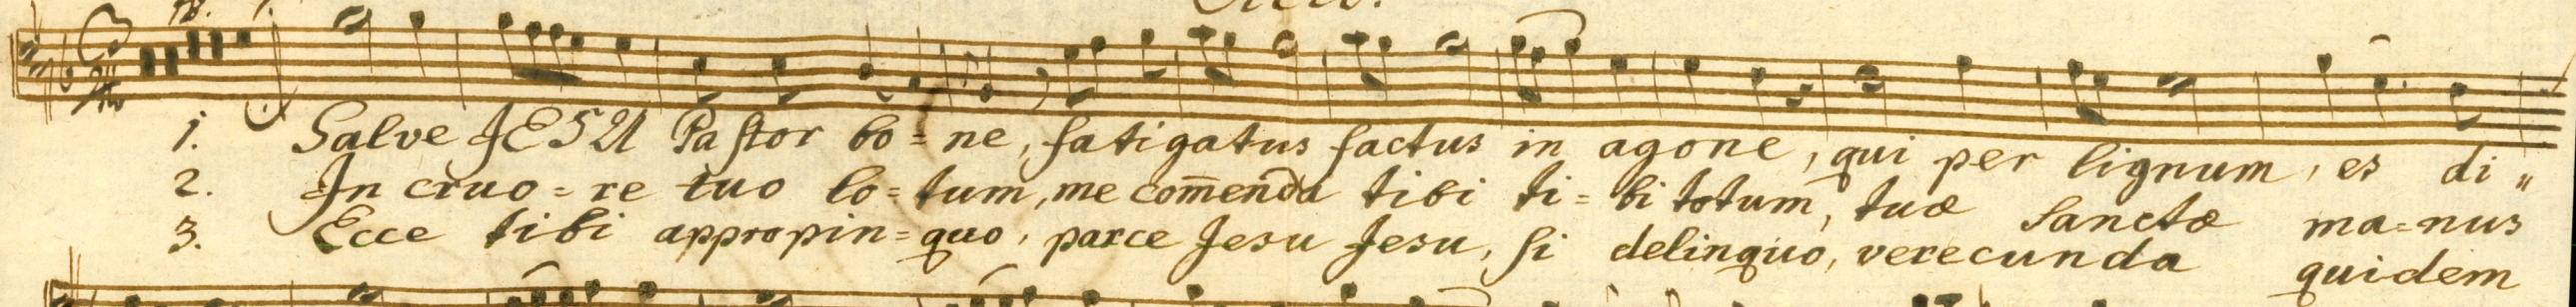 1. Salve JESU Pastor bo=ne, fatigatus factus in agone, qui per lignum, es di„
2. In cruo=re tuo lo=tum, me com̄enda tibi ti=bi totum, tuæ Sanctæ ma=nus
3. Ecce tibi appropin=quo, parce Jesu Jesu, si delinquo, verecunda quidem